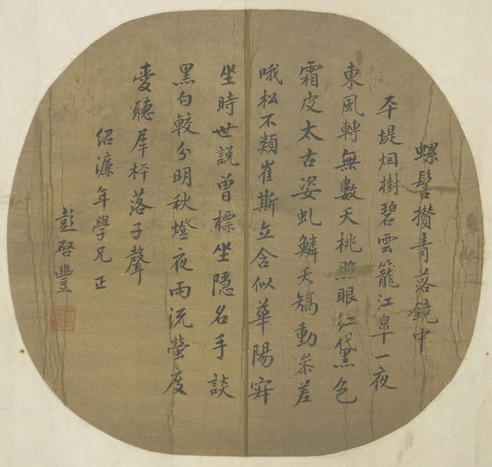 螺髻攢青落鏡中
平堤烟樹碧雲籠江皋一夜
東風轉無數夭桃照眼紅黛色
霜皮太古姿虬鱗夭矯動參差
哦松不類崔斯立合似華陽
坐時世説曾標坐隱名手談
黑白較分明秋燈夜雨流螢度
愛聽犀枰落子聲
紹濂年學兄正
彭啓豐